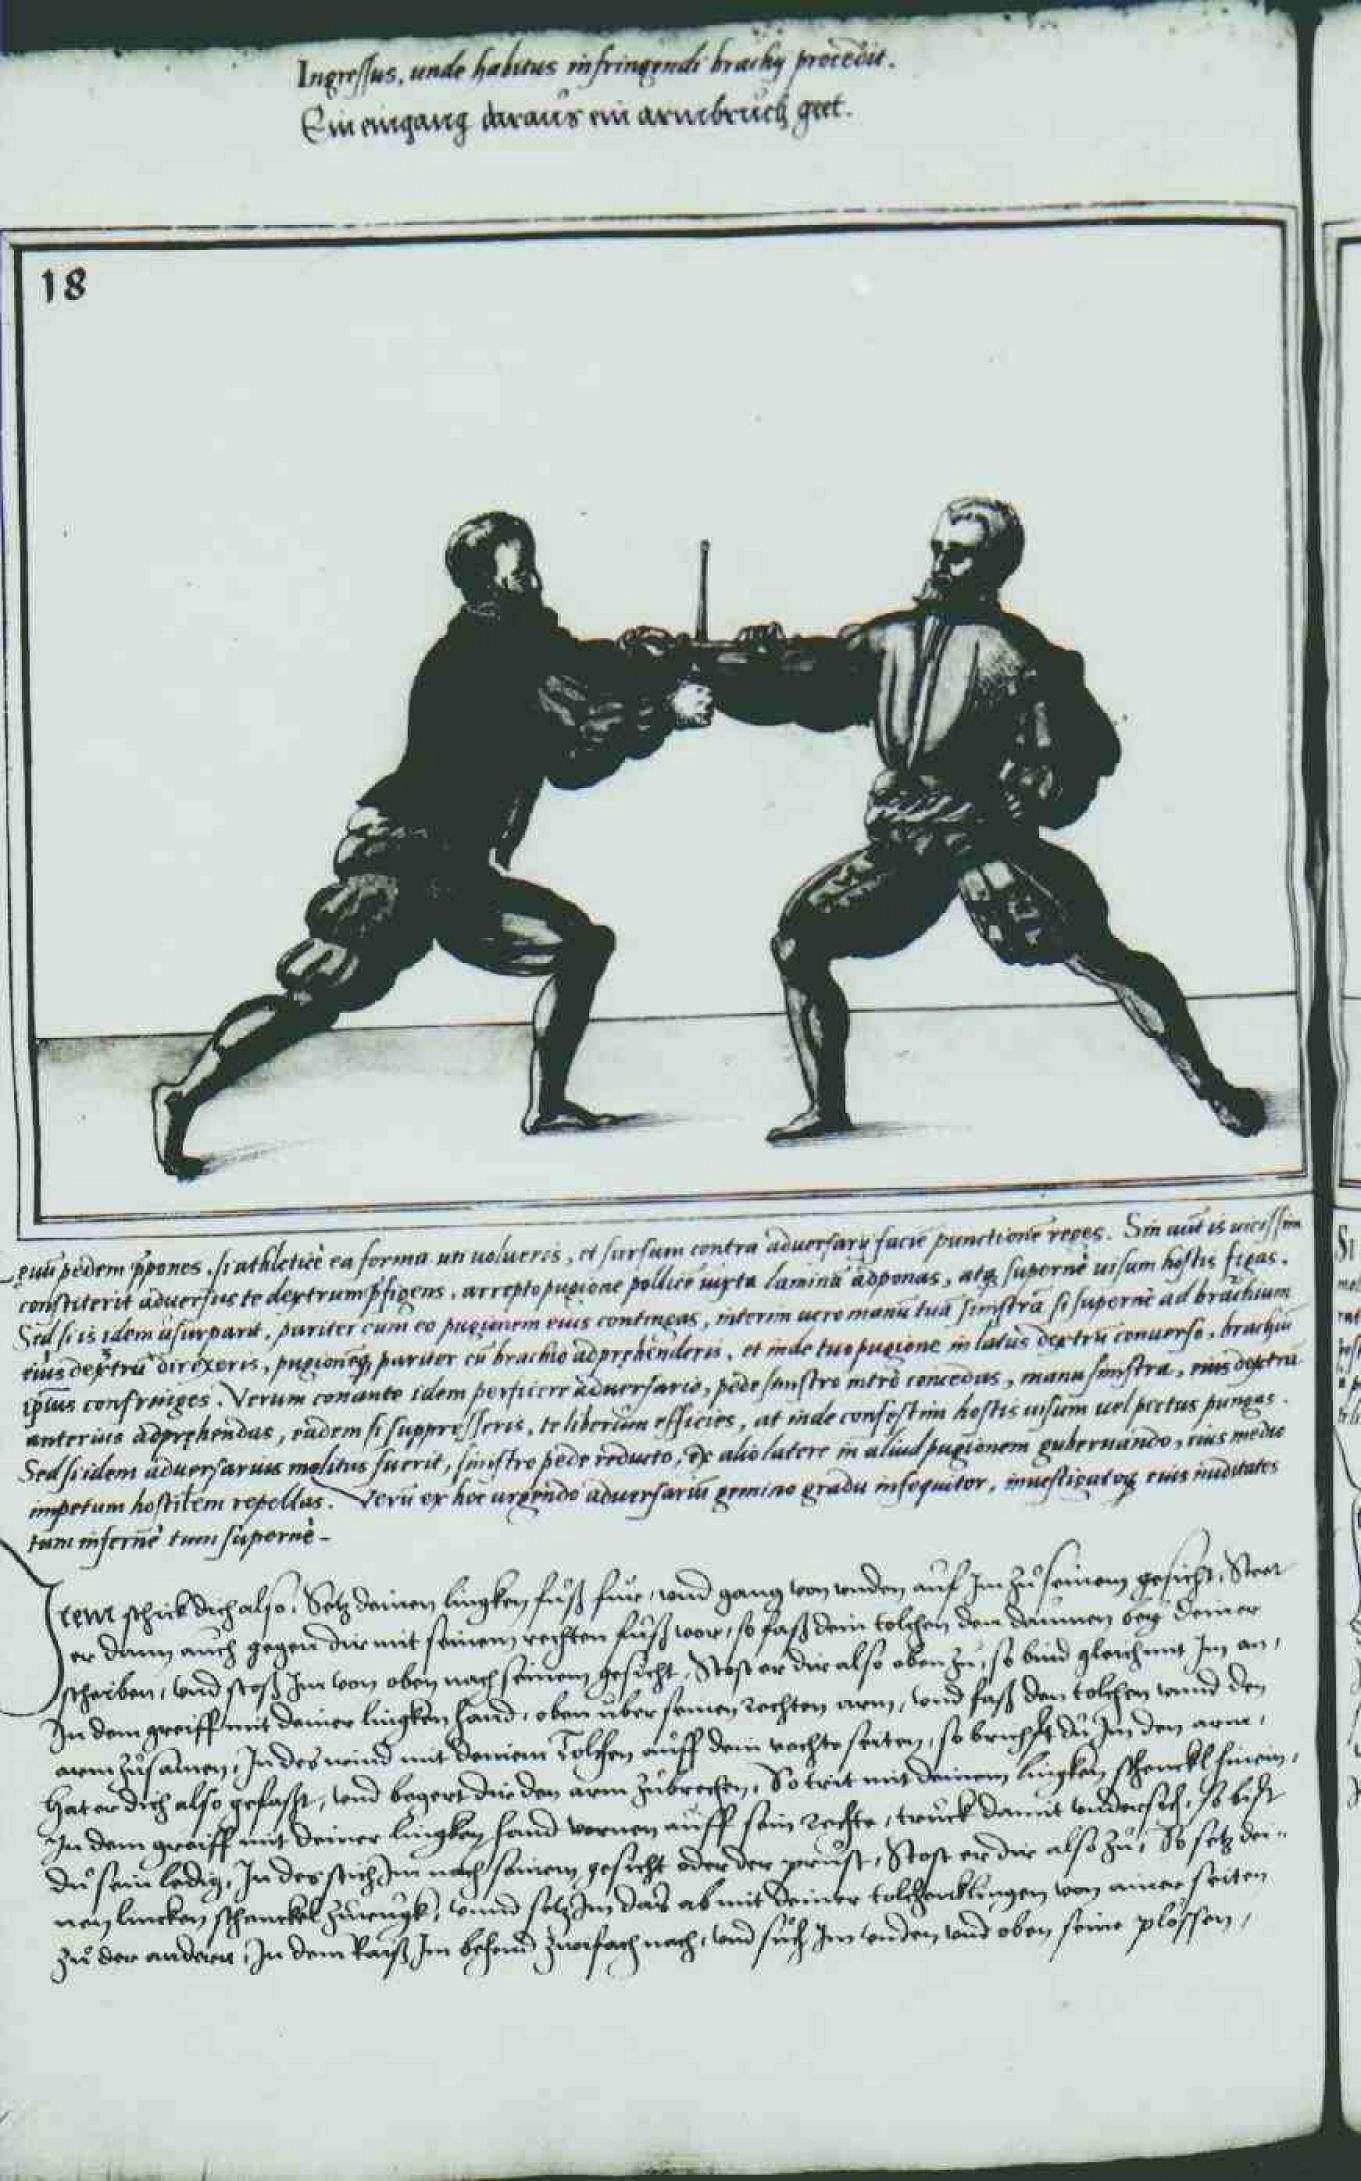 Ingressus, unde habitus infringendi brachij procedit.
Ein eingang daraus ein armbruch geet.
18
pedem ppones, si athleticè ea forma uti volueris, et sursum contra adversarij faciē punctionē reges. Sin aut is vicissim
constiterit adversus te dextrum pfigens, arrepto pugione pollicē iuxta laminā adponas, atq supernè visum hostis figas.
Sed si is idem usurparit, pariter cum eo pugionem eius contingas, interim vero manū tuā sinistrā si supernè ad brachium
eius dextrū direxeris, pugionēq pariter cū brachio adprehenderis, et inde tuo pugione in latus dextrū converso, brachiū
ipsius confringes. Verum conante idem perficere adversario, pede sinistro intrò concedas, manu sinistra, eius dextrā
anterius adprehendas, eādem si suppresseris, te liberum efficies, at inde confestim hostis visum vel pectus pungas.
Sed si idem adversarius molitus fuerit, sinistro pede reducto, ex alio latere in aliud pugionem gubernando, eius medio
impetum hostilem repellas. Verū ex hoc urgendo adversariū gemino gradu insequitor, investigatoq eius nuditates
tum infernè tum supernè -
Item schick dich also, Setz deinen lingken fuß für, und gang von unden auf Im zu seinem gesicht, Steet
er dann auch gegen dir mit seinem rechten fuß vor, so faß dein tolchen den daumen beÿ deiner
scheiben, und stoß Im von oben nach seinem gesicht, Stost er dir also oben zu, so bind gleich mit Im an,
In dem greiff mit deiner lingken hand, oben uber seinen rechten arm, und faß den tolchen unnd den
arm zusamen, In des wind mit deinem Tolchen auff dein rechte seiten, so brichstu Im den arm,
Hat er dich also gefasst, und begert dir den arm zubrechen, So trit mit deinem lingken schenckl hinein,
In dem greiff mit deiner lingken hand vornen auff sein rechte, truck damit undersich, so bist
du sein ledig, In des stich Im nach seinem gesicht oder der prust, Stost er dir also zu, So setz dei-
nen lincken schenckel zuruck, unnd setz Im das ab mit deiner tolchenklingen von ainer seiten
zu der anderen, In dem Raiß Im behend zwifach nach, und such Im unden und oben seine plössen,